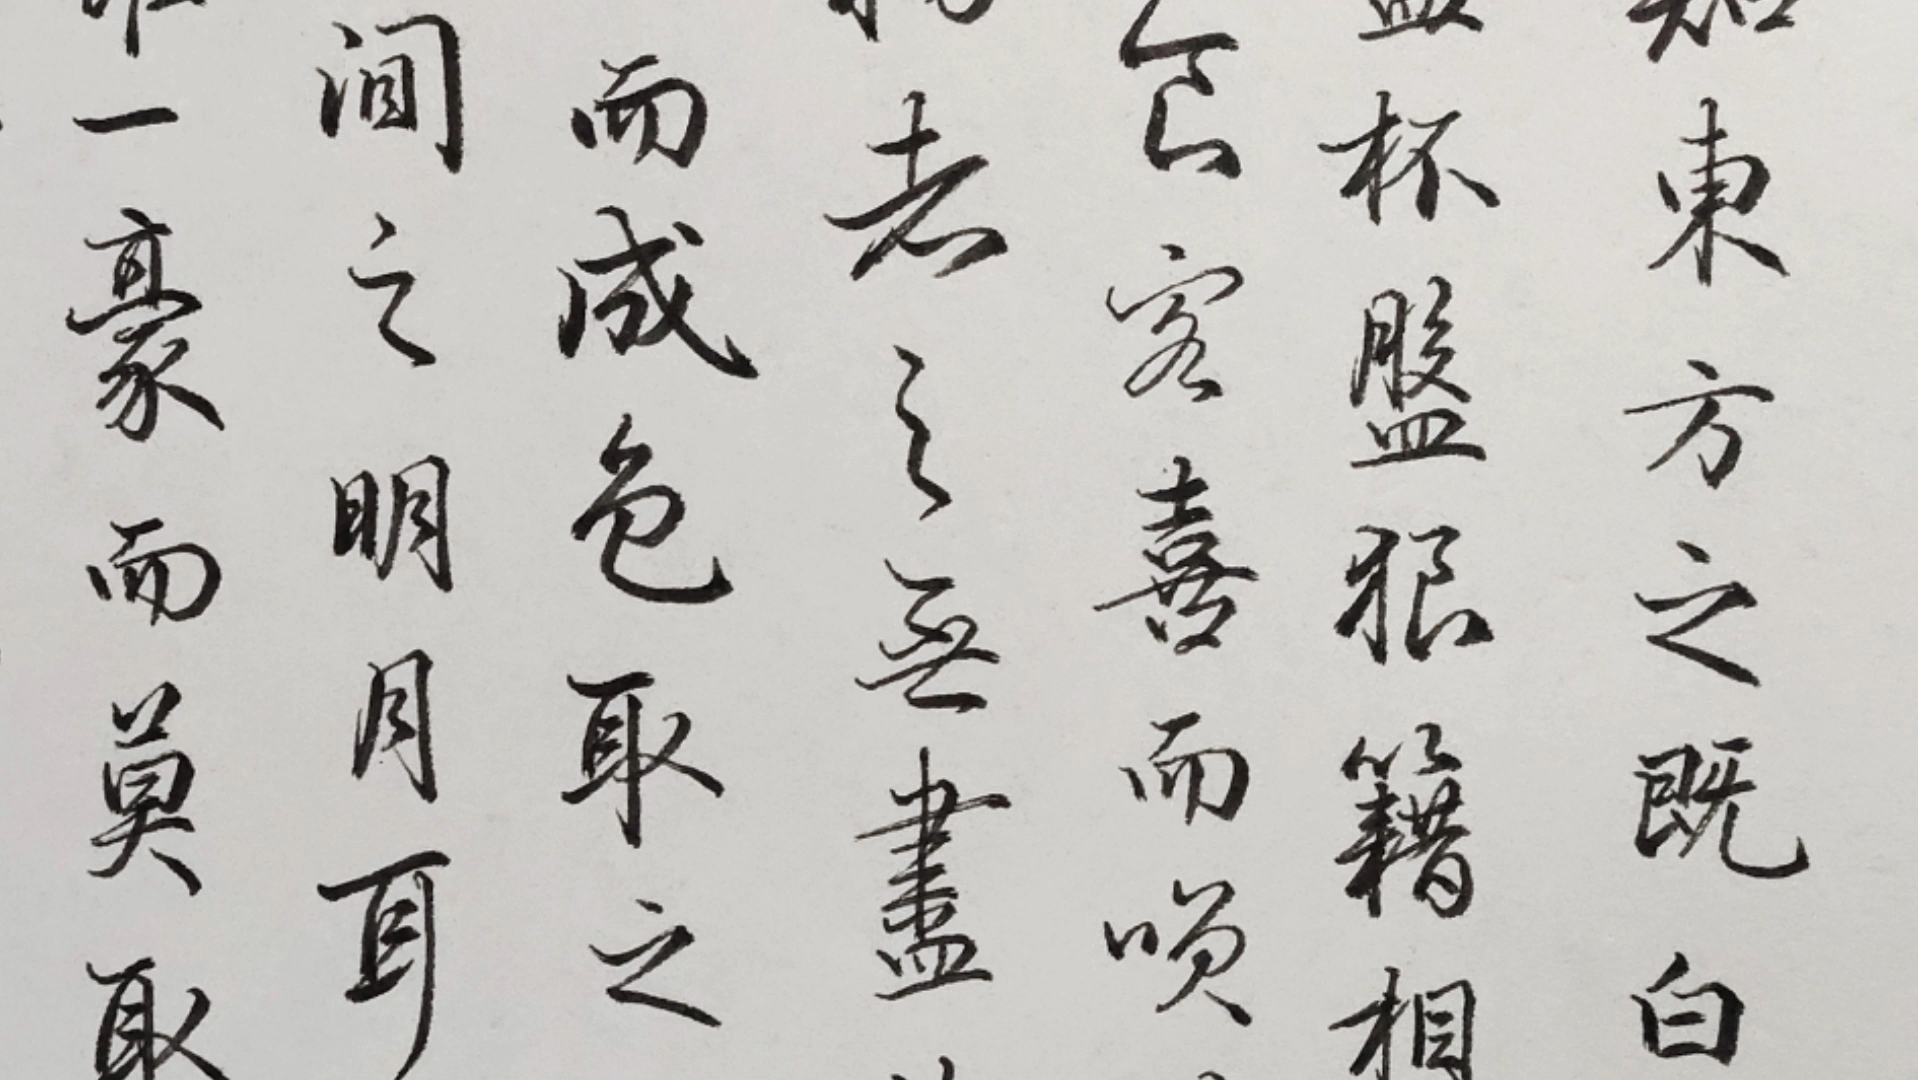 知東方之既白
盡杯盤狼籍相
食客喜而咲
物者之無盡
而成色取之
間之明月耳
一豪而莫取